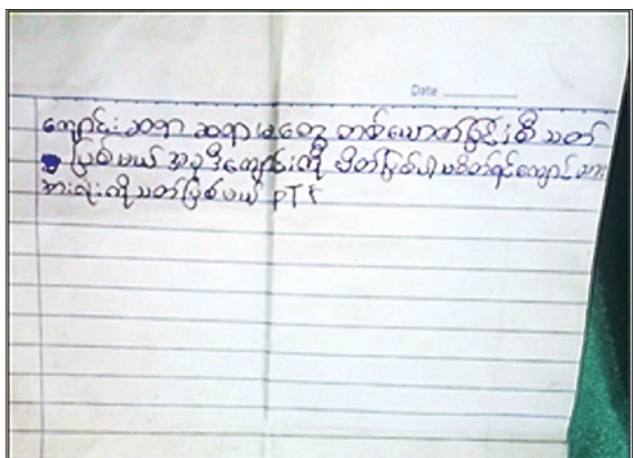 Date
ကျောင်းဆရာ ဆရာမတွေ တစ်ယောက်ခြင်းစီ သတ်
ပြစ်မယ် အခုဒီကျောင်းကို ပိတ်ပြစ်ပါ မပိတ်ရင်ကျောင်းသား
အားလုံးကိုသတ်ပြစ်မယ် PTF